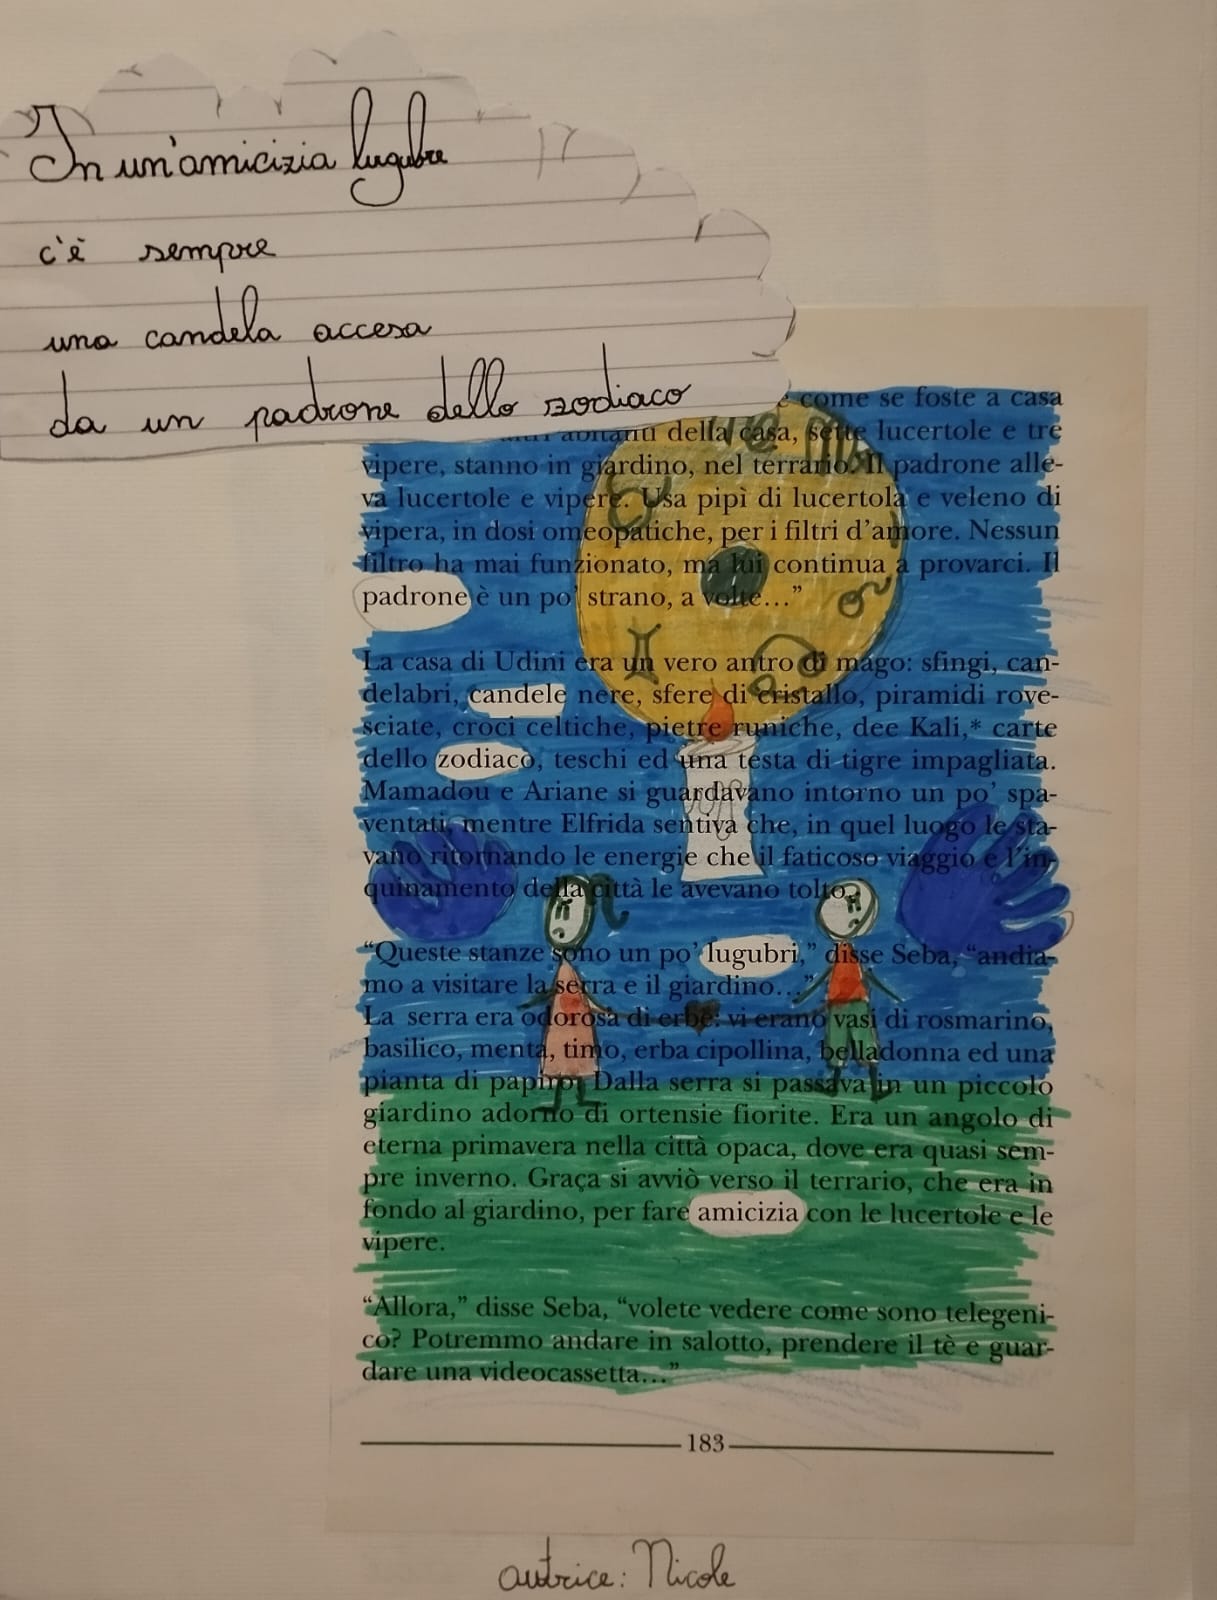 In un'amicizia lugubre
17
c'è sempre
una candela accesa
da un padrone dello zodiaco
come se foste a casa
abitanti della casa, sette lucertole e tre
vipere, stanno in giardino, nel terrario. Il padrone alle-
va lucertole e vipere. Usa pipì di lucertola e veleno di
vipera, in dosi omeopatiche, per i filtri d'amore. Nessun
filtro ha mai funzionato, ma lui continua a provarci. Il
padrone è un po' strano, a volte…”
La casa di Udini era un vero antro di mago: sfingi, can-
delabri, candele nere, sfere di cristallo, piramidi rove-
sciate, croci celtiche, pietre runiche, dee Kali,* carte
dello zodiaco, teschi ed una testa di tigre impagliata.
Mamadou e Ariane si guardavano intorno un po' spa-
ventati, mentre Elfrida sentiva che, in quel luogo le sta-
vano ritornando le energie che il faticoso viaggio e l'in-
quinamento della città le avevano tolto.
“Queste stanze sono un po' lugubri,” disse Seba, “andia-
mo a visitare la serra e il giardino…”
La serra era odorosa di erbe: vi erano vasi di rosmarino,
basilico, menta, timo, erba cipollina, belladonna ed una
pianta di papiro. Dalla serra si passava in un piccolo
giardino adorno di ortensie fiorite. Era un angolo di
eterna primavera nella città opaca, dove era quasi sem-
pre inverno. Graça si avviò verso il terrario, che era in
fondo al giardino, per fare amicizia con le lucertole e le
vipere.
“Allora,” disse Seba, “volete vedere come sono telegeni-
co? Potremmo andare in salotto, prendere il tè e guar-
dare una videocassetta…”
183
autrice: Nicole